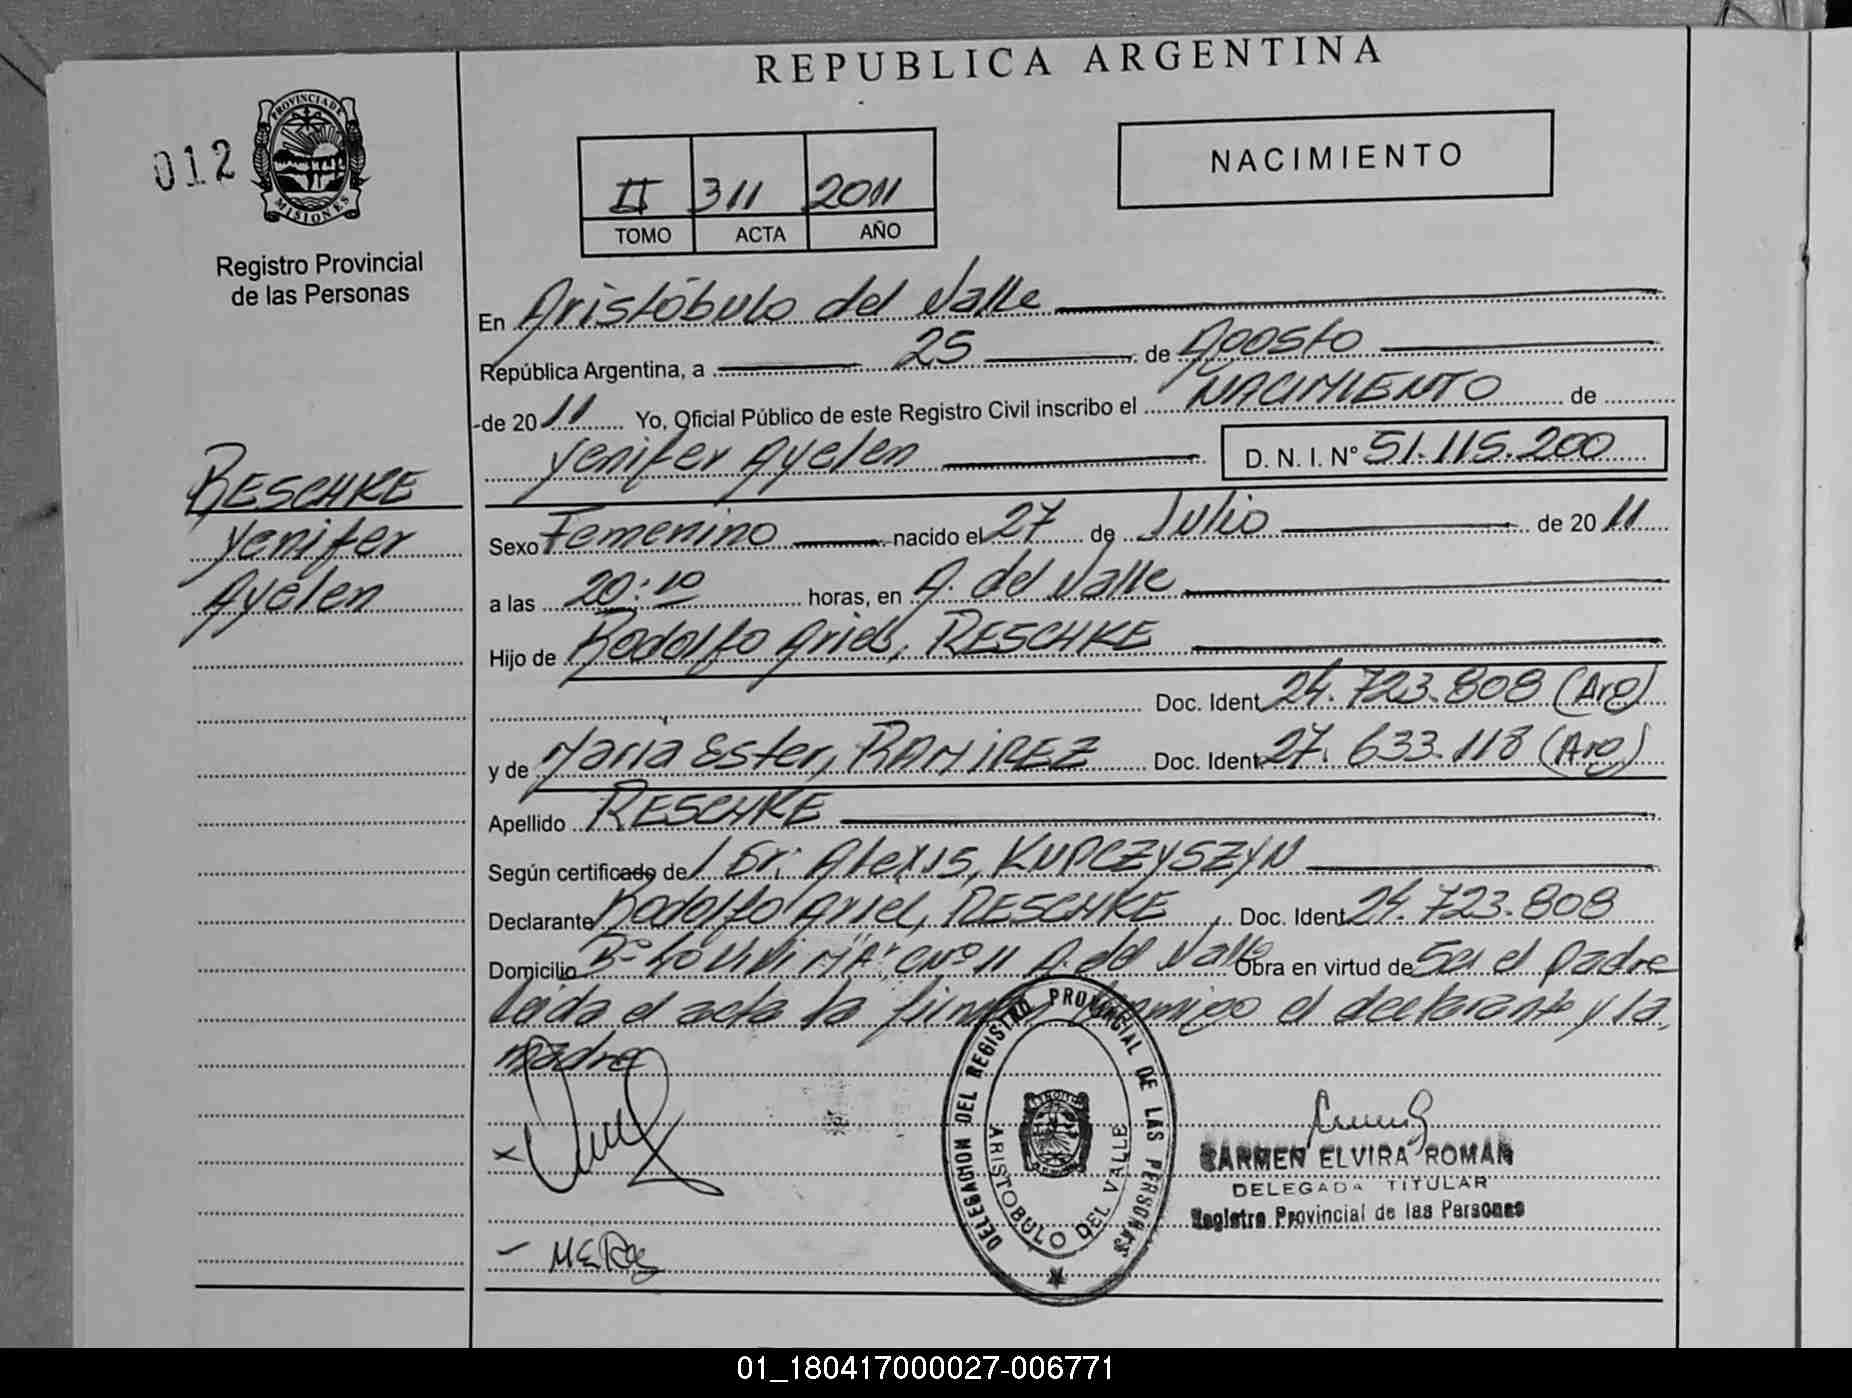 REPUBLICA ARGENTINA
012
PROVINCIA DE
MISIONES
Registro Provincial
de las Personas
NACIMIENTO
II 311 2011
TOMO ACTA AÑO
En Aristóbulo del Valle
República Argentina, a 25 de Agosto
de 2011 Yo, Oficial Público de este Registro Civil inscribo el NACIMIENTO de
Yenifer Ayelen D. N. I. Nº 51.115.200
RESCHKE
Yenifer
Ayelen
Sexo Femenino nacido el 27 de Julio de 2011
a las 20:10 horas, en A. del Valle
Hijo de Rodolfo Ariel, RESCHKE
Doc. Ident 24.723.808 (Arg)
y de Maria Ester, RAMIREZ Doc. Ident 27.633.118 (Arg)
Apellido RESCHKE
Según certificado de Dr: Alexis, KUPCZYSZYN
Declarante Rodolfo Ariel, RESCHKE, Doc. Ident 24.723.808
Domicilio Bº "A" 11 A. del Valle Obra en virtud de Ser el padre
Leida el acta la firman conmigo el declarante y la
madre
DELEGACION DEL REGISTRO PROVINCIAL DE LAS PERSONAS
ARISTOBULO DEL VALLE
CARMEN ELVIRA ROMAN
DELEGADA TITULAR
Registro Provincial de las Personas
01_180417000027-006771